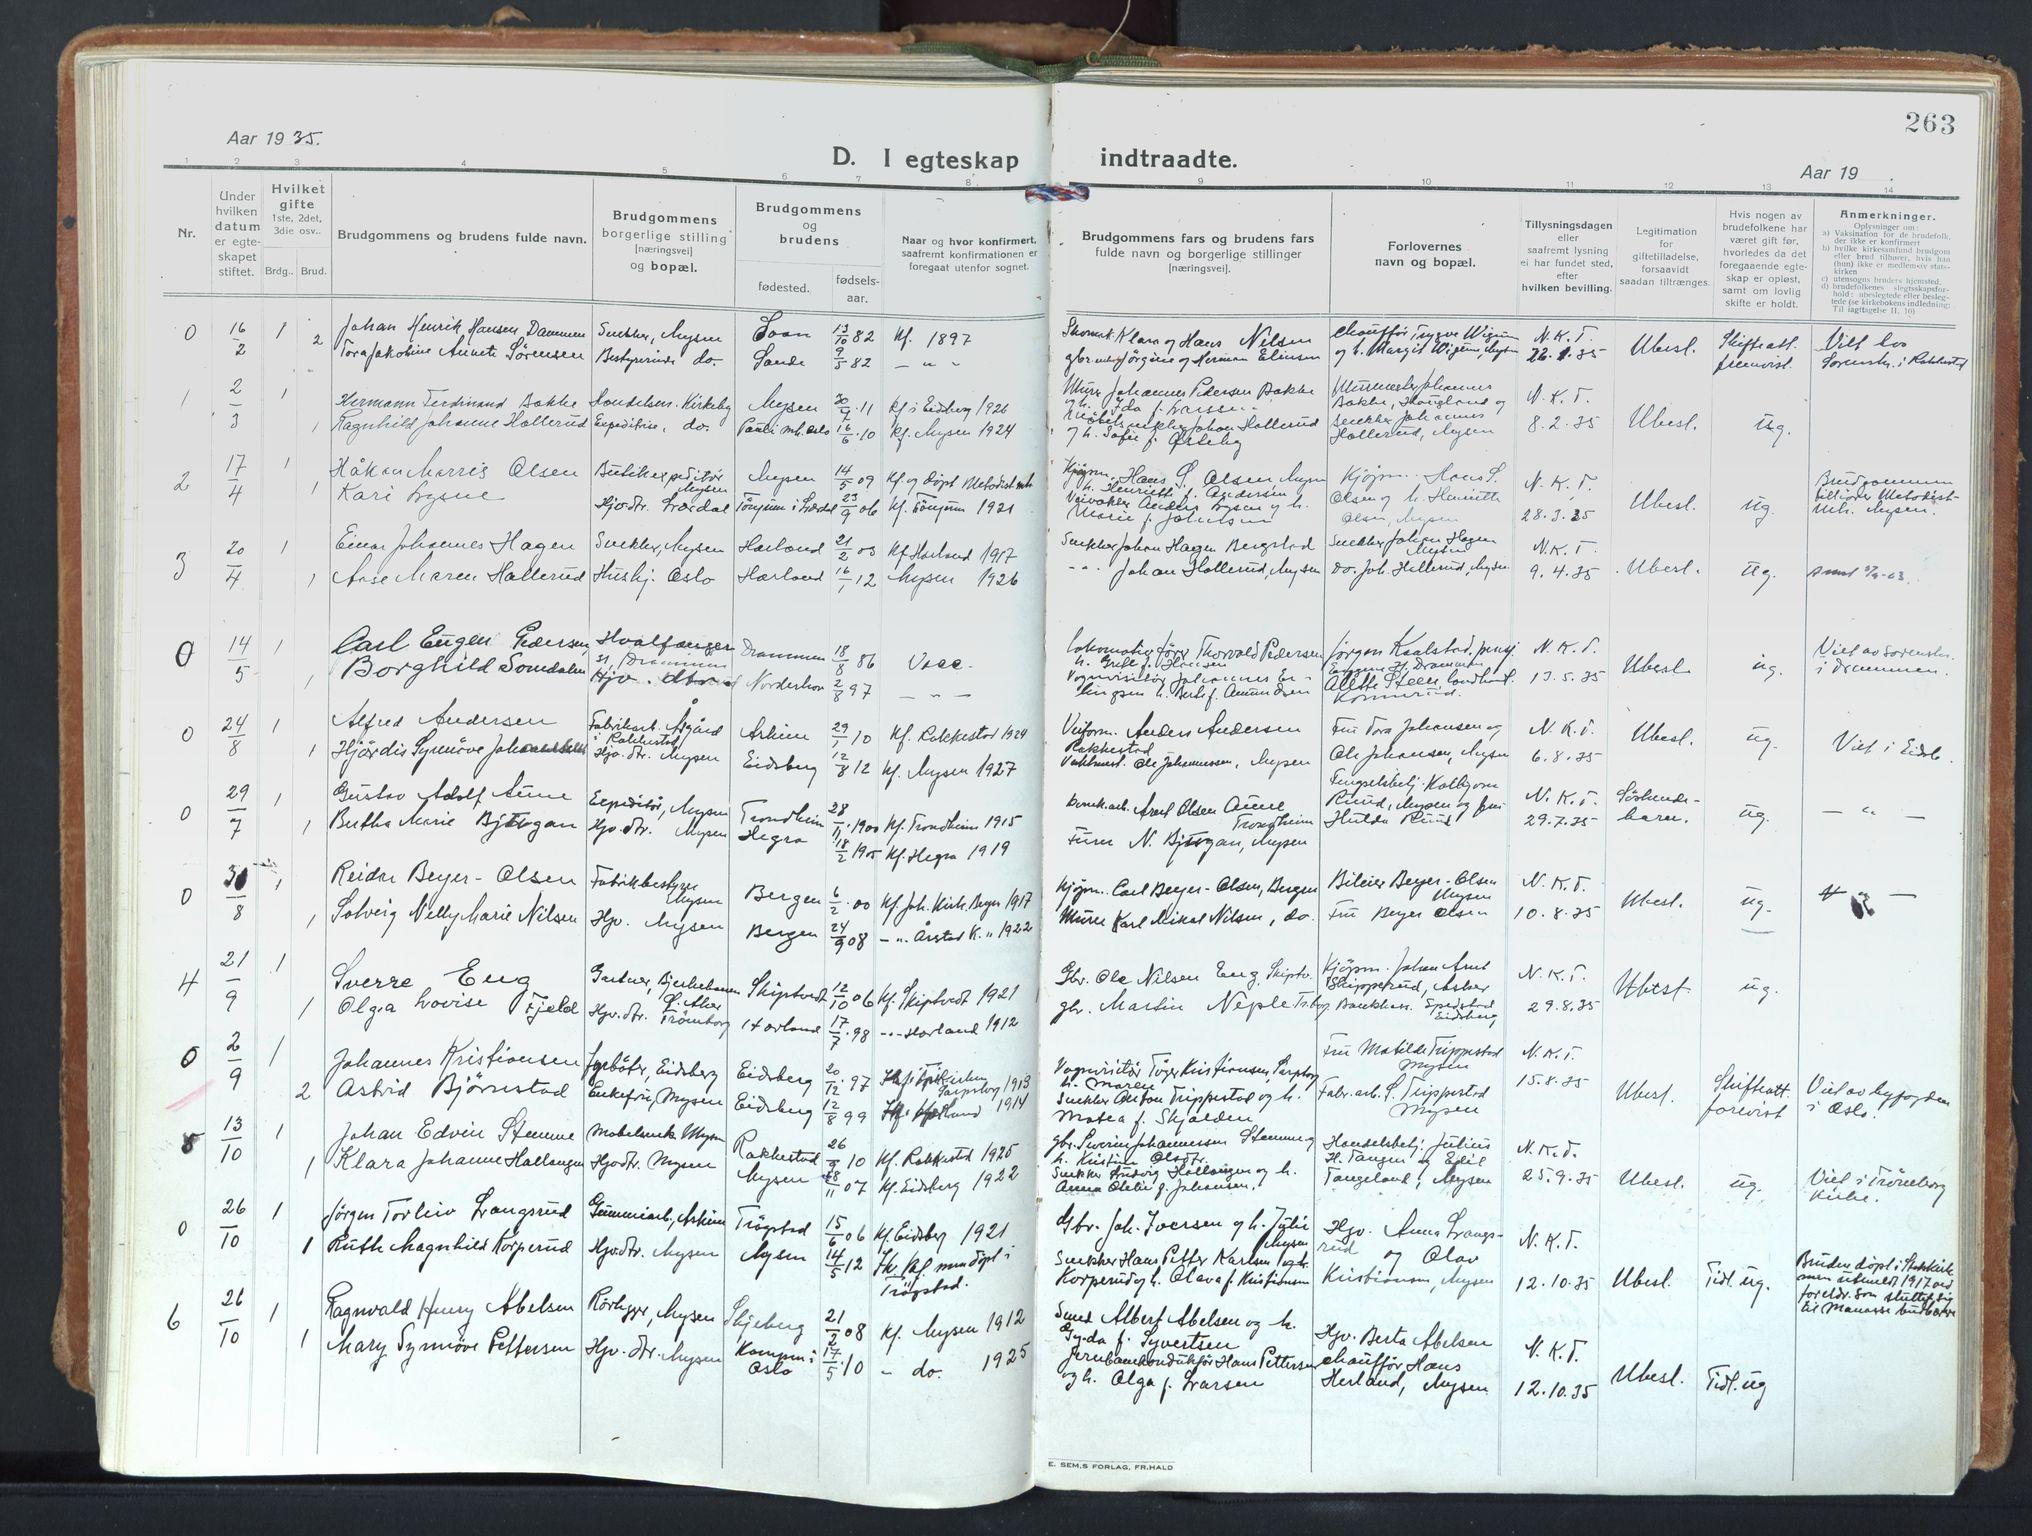 263
Aar 1935.
D. I egteskap indtraadte.
Aar 19
1 2 3 4 5 6 7 8 9 10 11 12 13 14
Nr.
Under hvilken datum er egteskapet stiftet.
Hvilket gifte
1ste, 2det, 3die osv..
Brdg.. Brud.
Brudgommens og brudens fulde navn.
Brudgommens borgerlige stilling [næringsvei] og bopæl.
Brudgommens og brudens
fødested. fødselsaar.
Naar og hvor konfirmert, saafremt konfirmationen er foregaat utenfor sognet.
Brudgommens fars og brudens fars fulde navn og borgerlige stillinger [næringsvei].
Forlovernes navn og bopæl.
Tillysningsdagen eller saafremt lysning ei har fundet sted, efter hvilken bevilling.
Legitimation for giftetilladelse, forsaavidt saadan tiltrænges.
Hvis nogen av brudefolkene har været gift før, hvorledes da det foregaaende egteskap er opløst, samt om lovlig skifte er holdt.
Anmerkninger.
Oplysninger om:
a) Vaksination for de brudefolk, der ikke er konfirmert
b) hvilke kirkesamfund brudgom eller brud tilhører, hvis han (hun) ikke er medlem av statskirken
c) utensogns bruders hjemsted.
d) brudefolkenes slegtskapsforhold: ubeslegtede eller beslegtede (se kirkebokens indledning: Til iagttagelse II, 10)
0 16/2 1 Johan Henrik Hansen Dammen Snekker, Mysen 13/10 82 Kf. 1897 Klara og Hans Nilsen Chauffør Trygve Wigum N.K.T. Ubesl. Skifteatt. Viet hos
2 Tora Jakobine Annette Sørensen Bestyrerinde do. Sande 9/5 82 — " " Jørgine og Herman Elinsen og h. Margit Wigum, Mysen 22.1.35 fremvist. Sorenskr. i Rakkestad
1 2/3 1 Hermann Ferdinand Bakke Handelsm. Kirkeby Mysen 20/9 11 Kf i Eidsberg 1926 Murer Johannes Pedersen Bakke Murmester Johannes N.K.T.
og h. Ida f. Larssen Bakke, Haugland og
1 Ragnhild Johanne Hallerud Expeditrise, do. 16/6 10 Kf. Mysen 1924 Møbelsnekker Johan Hallerud Snekker Johannes 8.2.35 Ubesl. ug.
og h. Sofie f. Ørteby Hallerud, Mysen
2 17/4 1 Håkan Morris Olsen Butikexpeditør Mysen Mysen 14/5 09 Kf. og døpt Metodistmh. Kjøpm. Hans S. Olsen Mysen Kjøpm. Hans S. N.K.T. Brudgommen
h. Henriette f. Andersen Olsen og h. Henriette tilhører Metodist-
1 Kari Lysne Hjv.dtr. Lærdal Tönjum i Lærdal 23/9 06 Kf. Tönjum 1921 Veivokter Anders Lysne og h. Olsen, Mysen 28.3.35 Ubesl. ug. mh. Mysen.
Marie f. Johnsen
3 20/4 1 Einar Johannes Hagen Snekker, Mysen Hærland 21/2 03 Kf Hærland 1917 Snekker Johan Hagen Bergstad Snekker Johan Hagen Mysen N.K.T.
1 Aase Maren Hallerud Hushj. Oslo Hærland 16/1 12 Mysen 1926 " " Johan Hallerud, Mysen do. Joh. Hallerud, Mysen 9.4.35 Ubesl. ug.
0 14/5 1 Carl Eugen Pedersen, Hvalfanger Drammen 18/8 86 Vacc. Lokomotivfører Thorvald Pedersen Jørgen Kaalstad, pensj. N.K.T. Viet av sorenskr.
1 Borghild Somdalen Norderhov 2/8 97 — " — Vognvisitør Johannes 13.5.35 Ubesl. ug. i Drammen.
0 24/8 1 Alfred Andersen Fabrikarb. Ågård i Rakkestad Askim 29/1 10 Kf. Rakkestad 1924 Anders Andersen Fru Tora Johansen og N.K.T.
Rakkestad
1 Hjördis Synnöve Hjv.dtr. Mysen Eidsberg 12/8 12 Kf. Mysen 1927 Ole Johannessen, Mysen Ole Johansen, Mysen 6.8.35 Ubesl. ug. Viet i Eidsb.
0 29/7 1 Gustav Adolf Aune Expeditör, Mysen Trondheim 28/11 1900 Kf. Trondheim 1915 Axel Olsen Aune Trondheim Ruud, Mysen og fru N.K.T. Søskende-
1 Bertha Marie Björgan Hjv.dtr. Mysen Hegra 18/2 1905 Kf. Hegra 1919 Furer N. Björgan, Mysen Hulda Ruud 29.7.35 barn. ug. — " —
0 31/8 1 Reidar Beyer-Olsen Fabrikbestyrer Mysen Bergen 6/2 00 Kf. Joh. Kirk. Bergen 1917 Kjøpm. Carl Beyer-Olsen, Bergen Bileier Beyer-Olsen Mysen N.K.T.
1 Solveig Nelly Marie Nilsen Hjv. Mysen Bergen 24/9 08 — " Årstad K. " 1922 Murer Karl Mikal Nilsen, do. Fru Beyer Olsen 10.8.35 Ubesl. ug.
4 21/9 1 Sverre Eng Gartner, Skiptvedt 12/10 06 Kf. Skiptvedt 1921 Gbr. Ole Nilsen Eng, Skiptv. Kjøpm. Johan Arnt N.K.T.
1 Olga Lovise Fjeld Hjv.dtr. Trömborg Hærland 17/7 98 — " Hærland 1912 gbr. Martin Neple 29.8.35 Ubesl. ug.
5 2/9 1 Johannes Kristiansen Fyrböter, Eidsberg Eidsberg 20/12 97 Sarpsborg 1913 Vognvisitör Töger Kristiansen, Sarpsborg Fru Matilde Trippestad Mysen N.K.T.
h. Maren
2 Astrid Björnestad Enkefru, Mysen Eidsberg 12/8 99 Hærland 1914 Snekker Anton Trippestad og h. Fabr.arb. S. Trippestad Mysen 15.8.35 Ubesl. Skifteatt. forevist Viet av byfogden i Oslo.
Matea f. Skjolden
5 13/10 1 Johan Edvin Stemme Møbelsnek. Mysen Rakkestad 26/9 10 Kf. Rakkestad 1925 gbr. Severin Johannessen Stemme og Handelsbetj. Julius N.K.T. Viet i Trömborg
h. Kristine Olsdtr. H. Tangen og Edil
1 Klara Johanne Hallangen Hjv.dtr. Mysen Mysen 28/11 07 Kf. Eidsberg 1922 Snekker Ludvig Hallangen og h. Tangeland, Mysen 25.9.35 Ubesl. ug. kirke.
Anna Otelie f. Johansen.
0 26/10 1 Jørgen Torleiv Langsrud Gummiarb., Askim Trögstad 15/6 06 Kf. Eidsberg 1921 Gbr. Joh. Iversen og h. Julie Mysen Hjv. Anna Langsrud N.K.T.
1 Ruth Magnhild Korperud Hjv.dtr. Mysen Mysen 14/5 12 men döpt i Trögstad. Snekker Hans Petter Karlsen og Olav
Korperud og h. Olava f. Kristiansen Kristiansen, Mysen 12.10.35 Ubesl. Tidl. ug. Bruden döpt i Statskirk.
men utmeldt 1917 ved
foreldr. som sluttet sig
til
6 26/10 1 Ragnvald Henry Abelsen Rörlegger, Mysen Skjeberg 21/2 08 Kf. Mysen 1912 Smed Albert Abelsen og h. Hjv. Berta Abelsen N.K.T.
Gyda f. Syvertsen
1 Mary Synnöve Pettersen Hjv. dtr. Mysen Kampen i Oslo 17/5 10 — do. 1925 Jernbanekonduktør Hans Pettersen chauffør Hans
og h. Olga f. Larsen Herland, Mysen 12.10.35 Ubesl. Tidl. ug
E. SEM,S FORLAG, FR.HALD